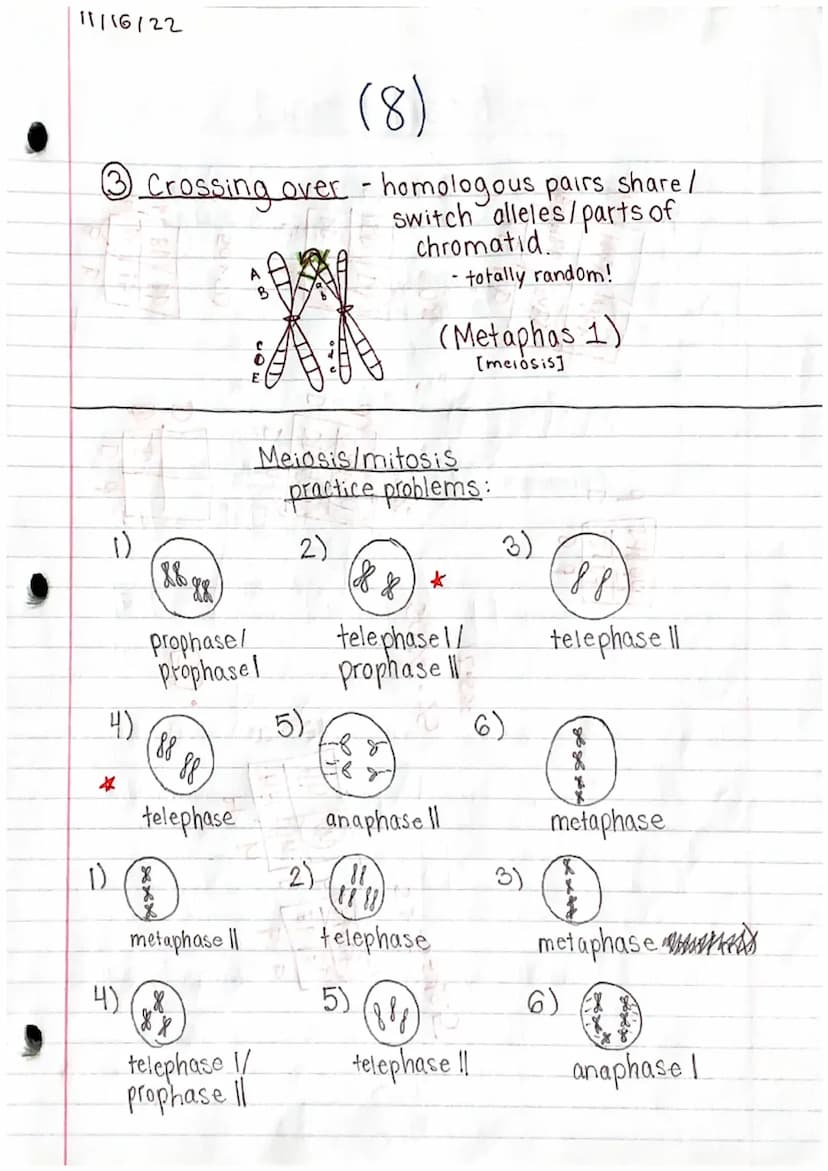 11/16/22
(8)
③ Crossing over - homologous pairs share/
switch alleles/parts of
chromatid.
- totally random!
A
B
a
b
C
D
E
c
d
e
(Metaphas 1)
[meiosis]
Meiosis/mitosis
practice problems:
1) 2) 3)
prophase/ telephase I/ telephase II
prophase I prophase II
4) 5) 6)
telephase anaphase II metaphase
1) 2) 3)
metaphase II telephase metaphase
4) 5) 6)
telephase I/ telephase II anaphase I
prophase II